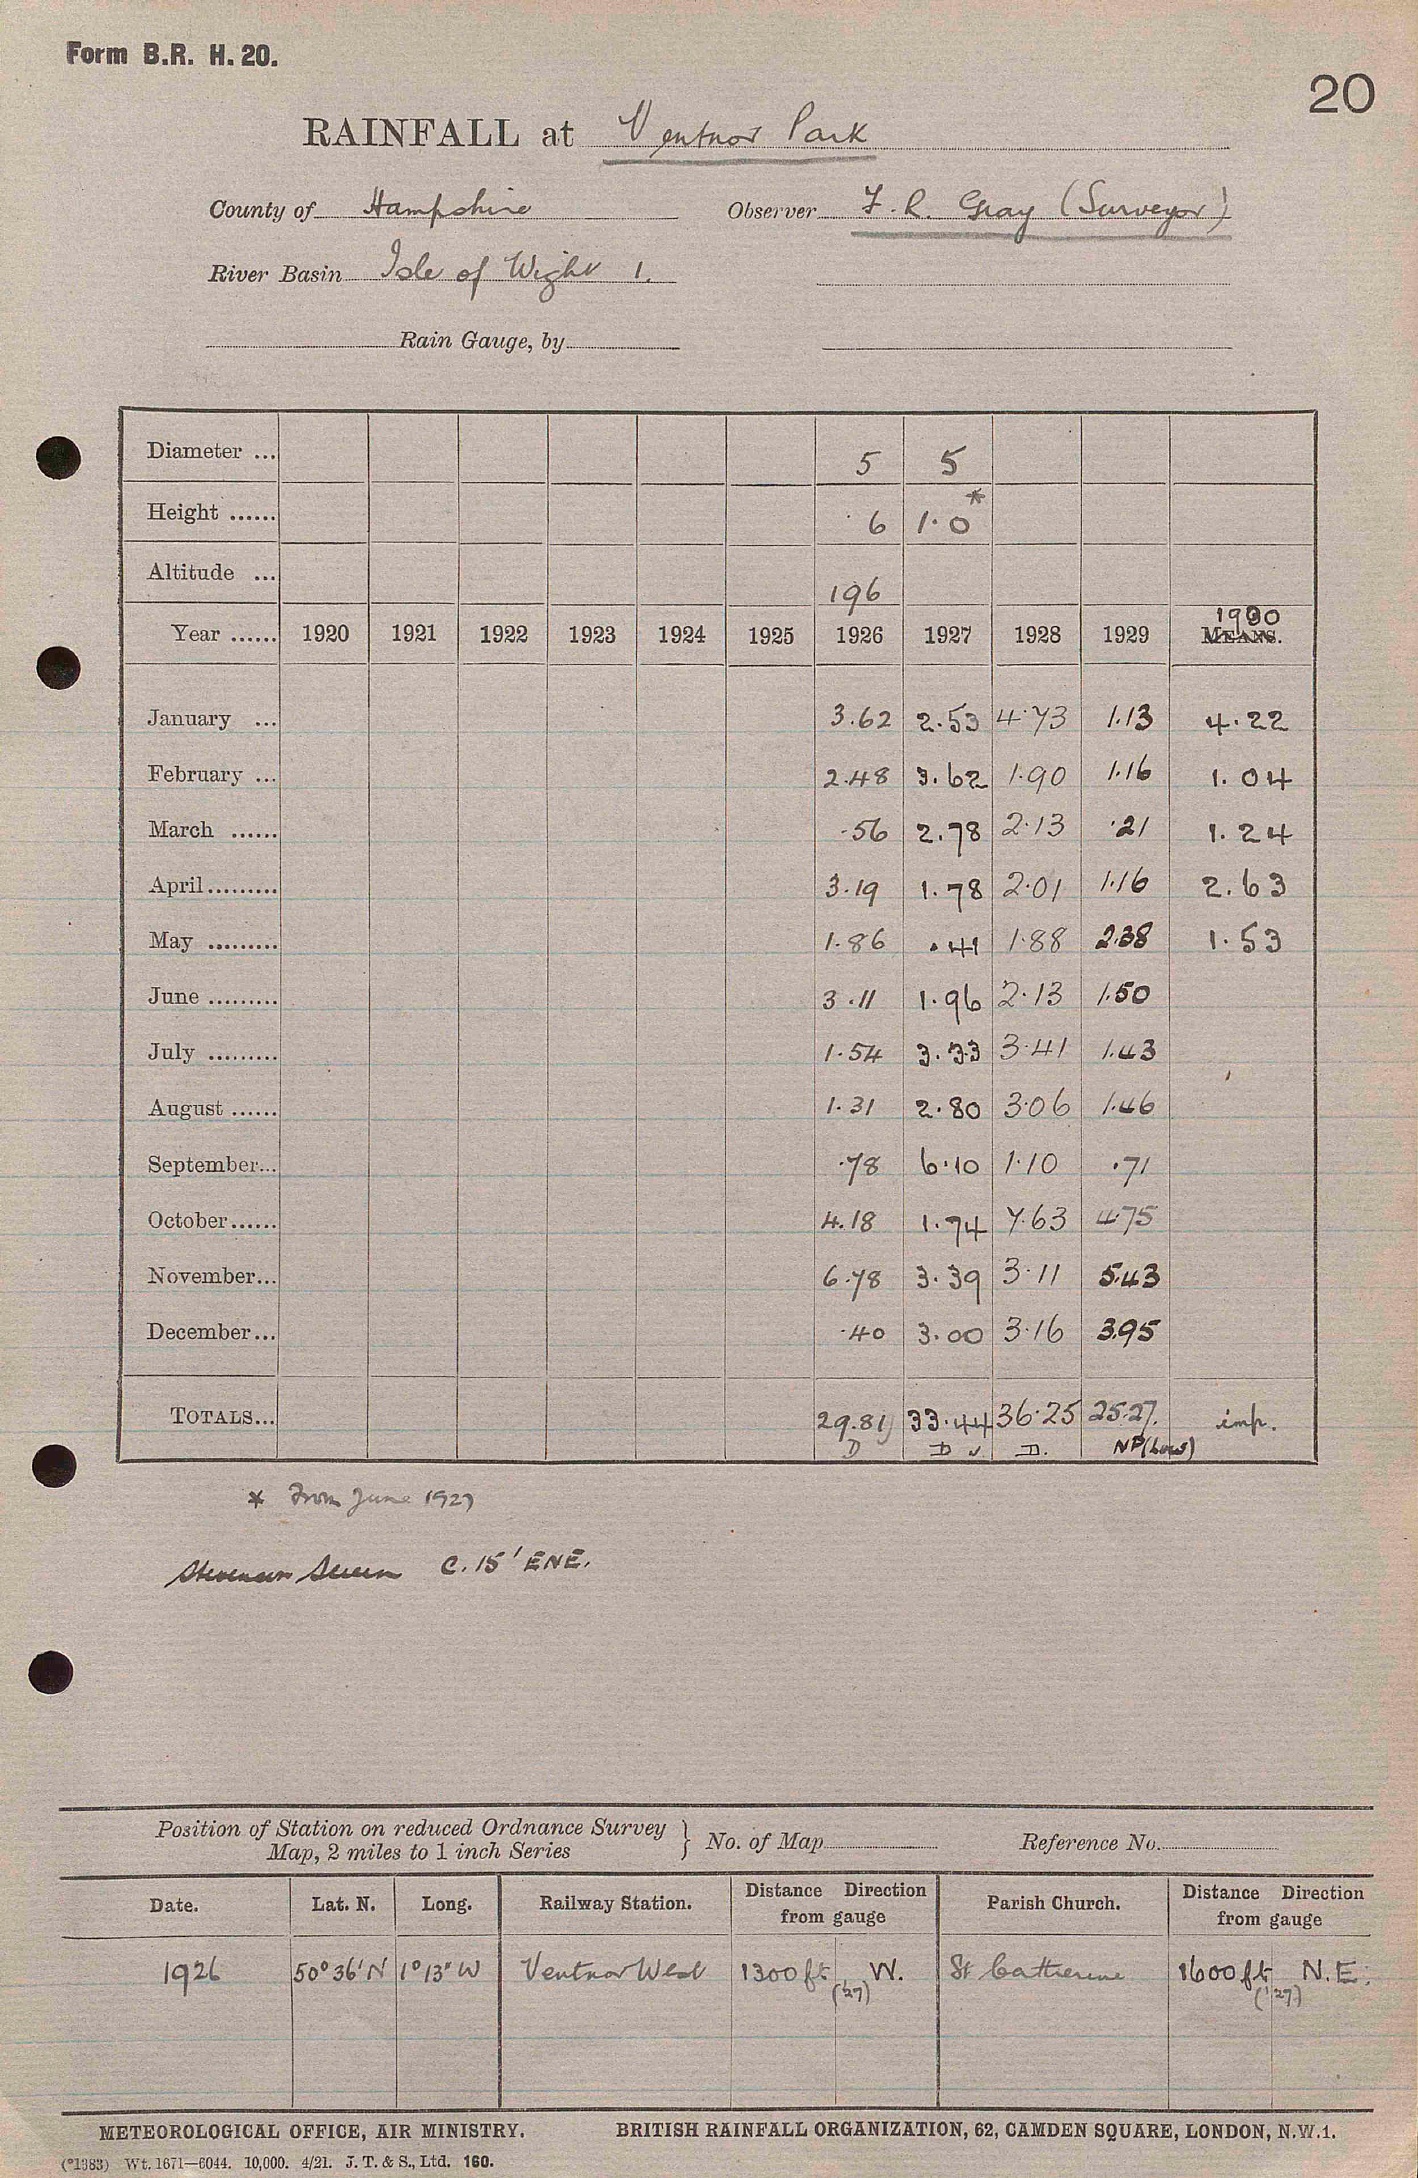 Form B.R. H. 20.
20
RAINFALL at Ventnor Park
County of Hampshire Observer F. R. Gray (Surveyor)
River Basin Isle of Wight 1.
Rain Gauge, by
Diameter ... 5 5
Height ...... ·6 1·0*
Altitude ... 196
Year ...... 1920 1921 1922 1923 1924 1925 1926 1927 1928 1929 1930 MEANS.
January ... 3.62 2.53 4.73 1.13 4.22
February ... 2.48 3.62 1.90 1.16 1.04
March ...... .56 2.78 2.13 .21 1.24
April......... 3.19 1.78 2.01 1.16 2.63
May ......... 1.86 .41 1.88 2.38 1.53
June ......... 3.11 1.96 2.13 1.50
July ......... 1.54 3.33 3.41 1.43
August ...... 1.31 2.80 3.06 1.46
September... .78 6.10 1.10 .71
October...... 4.18 1.74 7.63 4.75
November... 6.78 3.39 3.11 5.43
December... .40 3.00 3.16 3.95
TOTALS... 29.81 33.44 36.25 25.27. imp.
D D D. NP (Low)
* From June 1927
Stevenson Screen C. 15' ENE.
Position of Station on reduced Ordnance Survey
Map, 2 miles to 1 inch Series } No. of Map Reference No.
Date. Lat. N. Long. Railway Station. Distance Direction from gauge Parish Church. Distance Direction from gauge
1926 50° 36' N 1° 13" W Ventnor West 1300 ft W. St Catherine 1600 ft N.E.
('27) ('27)
METEOROLOGICAL OFFICE, AIR MINISTRY. BRITISH RAINFALL ORGANIZATION, 62, CAMDEN SQUARE, LONDON, N.W.1.
(*1383) Wt. 1671—6044. 10,000. 4/21. J. T. & S., Ltd. 160.